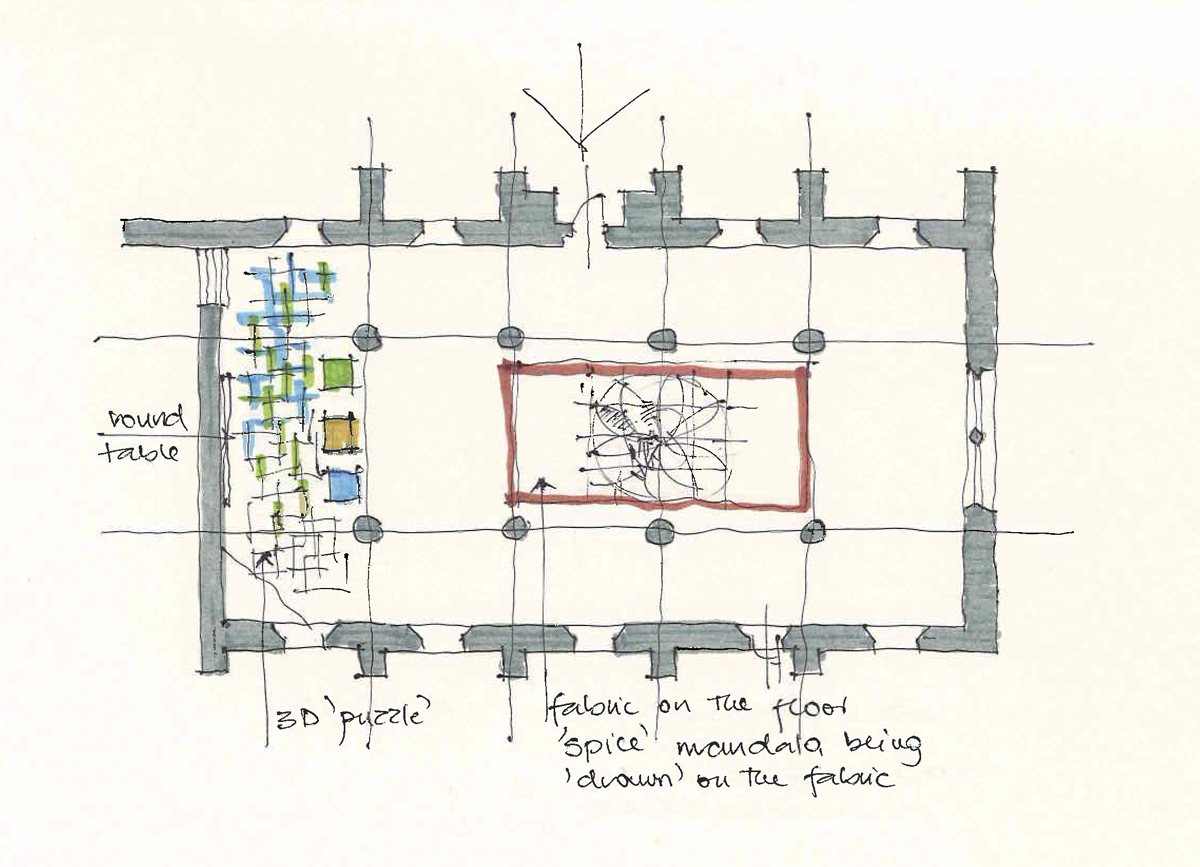 round
table
3D 'puzzle'
fabric on the floor
'spice' mandala being
'drawn' on the fabric